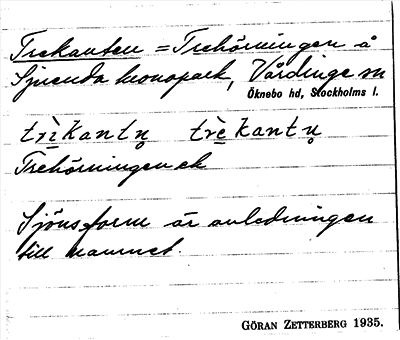 Trekanten = Trehörningen å
Sjunda kronopark, Vårdinge sn
Öknebo hd, Stockholms l.
trèkantn̥ trèkantn̥
Trehörningen ek
Sjöns form är anledningen
till namnet
GÖRAN ZETTERBERG 1935.